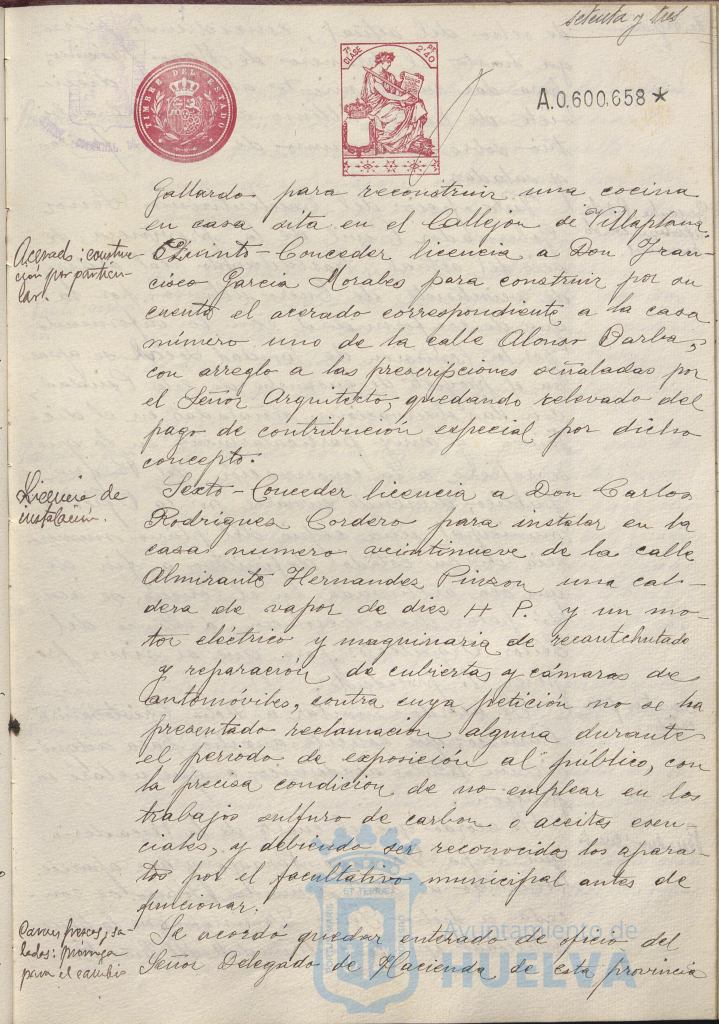 setenta y tres
TIMBRE DEL ESTADO
7ª CLASE
2'40 Ps
A.0.600.658*
Gallardo para reconstruir una cocina
en casa sita en el Callejón de Villaplana.
Acerado: construc-
ción por particu-
lar.
Quinto - Conceder licencia a Don Fran-
cisco García Morales para construir por su
cuenta el acerado correspondiente a la casa
número uno de la calle Alonso Barba,
con arreglo a las prescripciones señaladas por
el Señor Arquitecto, quedando relevado del
pago de contribución especial por dicho
concepto.
Licencia de
instalación.
Sexto - Conceder licencia a Don Carlos
Rodriguez Cordero para instalar en la
casa numero veintinueve de la calle
Almirante Hernandez Pinzon una cal-
dera de vapor de diez H P. y un mo-
tor eléctrico y maquinaria de recauchutado
y reparación de cubiertas y cámaras de
automóviles, contra cuya petición no se ha
presentado reclamación alguna durante
el periodo de exposición al público, con
la precisa condición de no emplear en los
trabajos sulfuro de carbon o aceites esen-
ciales, y debiendo ser reconocidos los apara-
tos por el facultativo municipal antes de
funcionar.
Carnes frescas y sa-
ladas: prórroga
para el cambio
Se acordó quedar enterado de oficio del
Señor Delegado de Hacienda de esta provincia
Ayuntamiento de
HUELVA